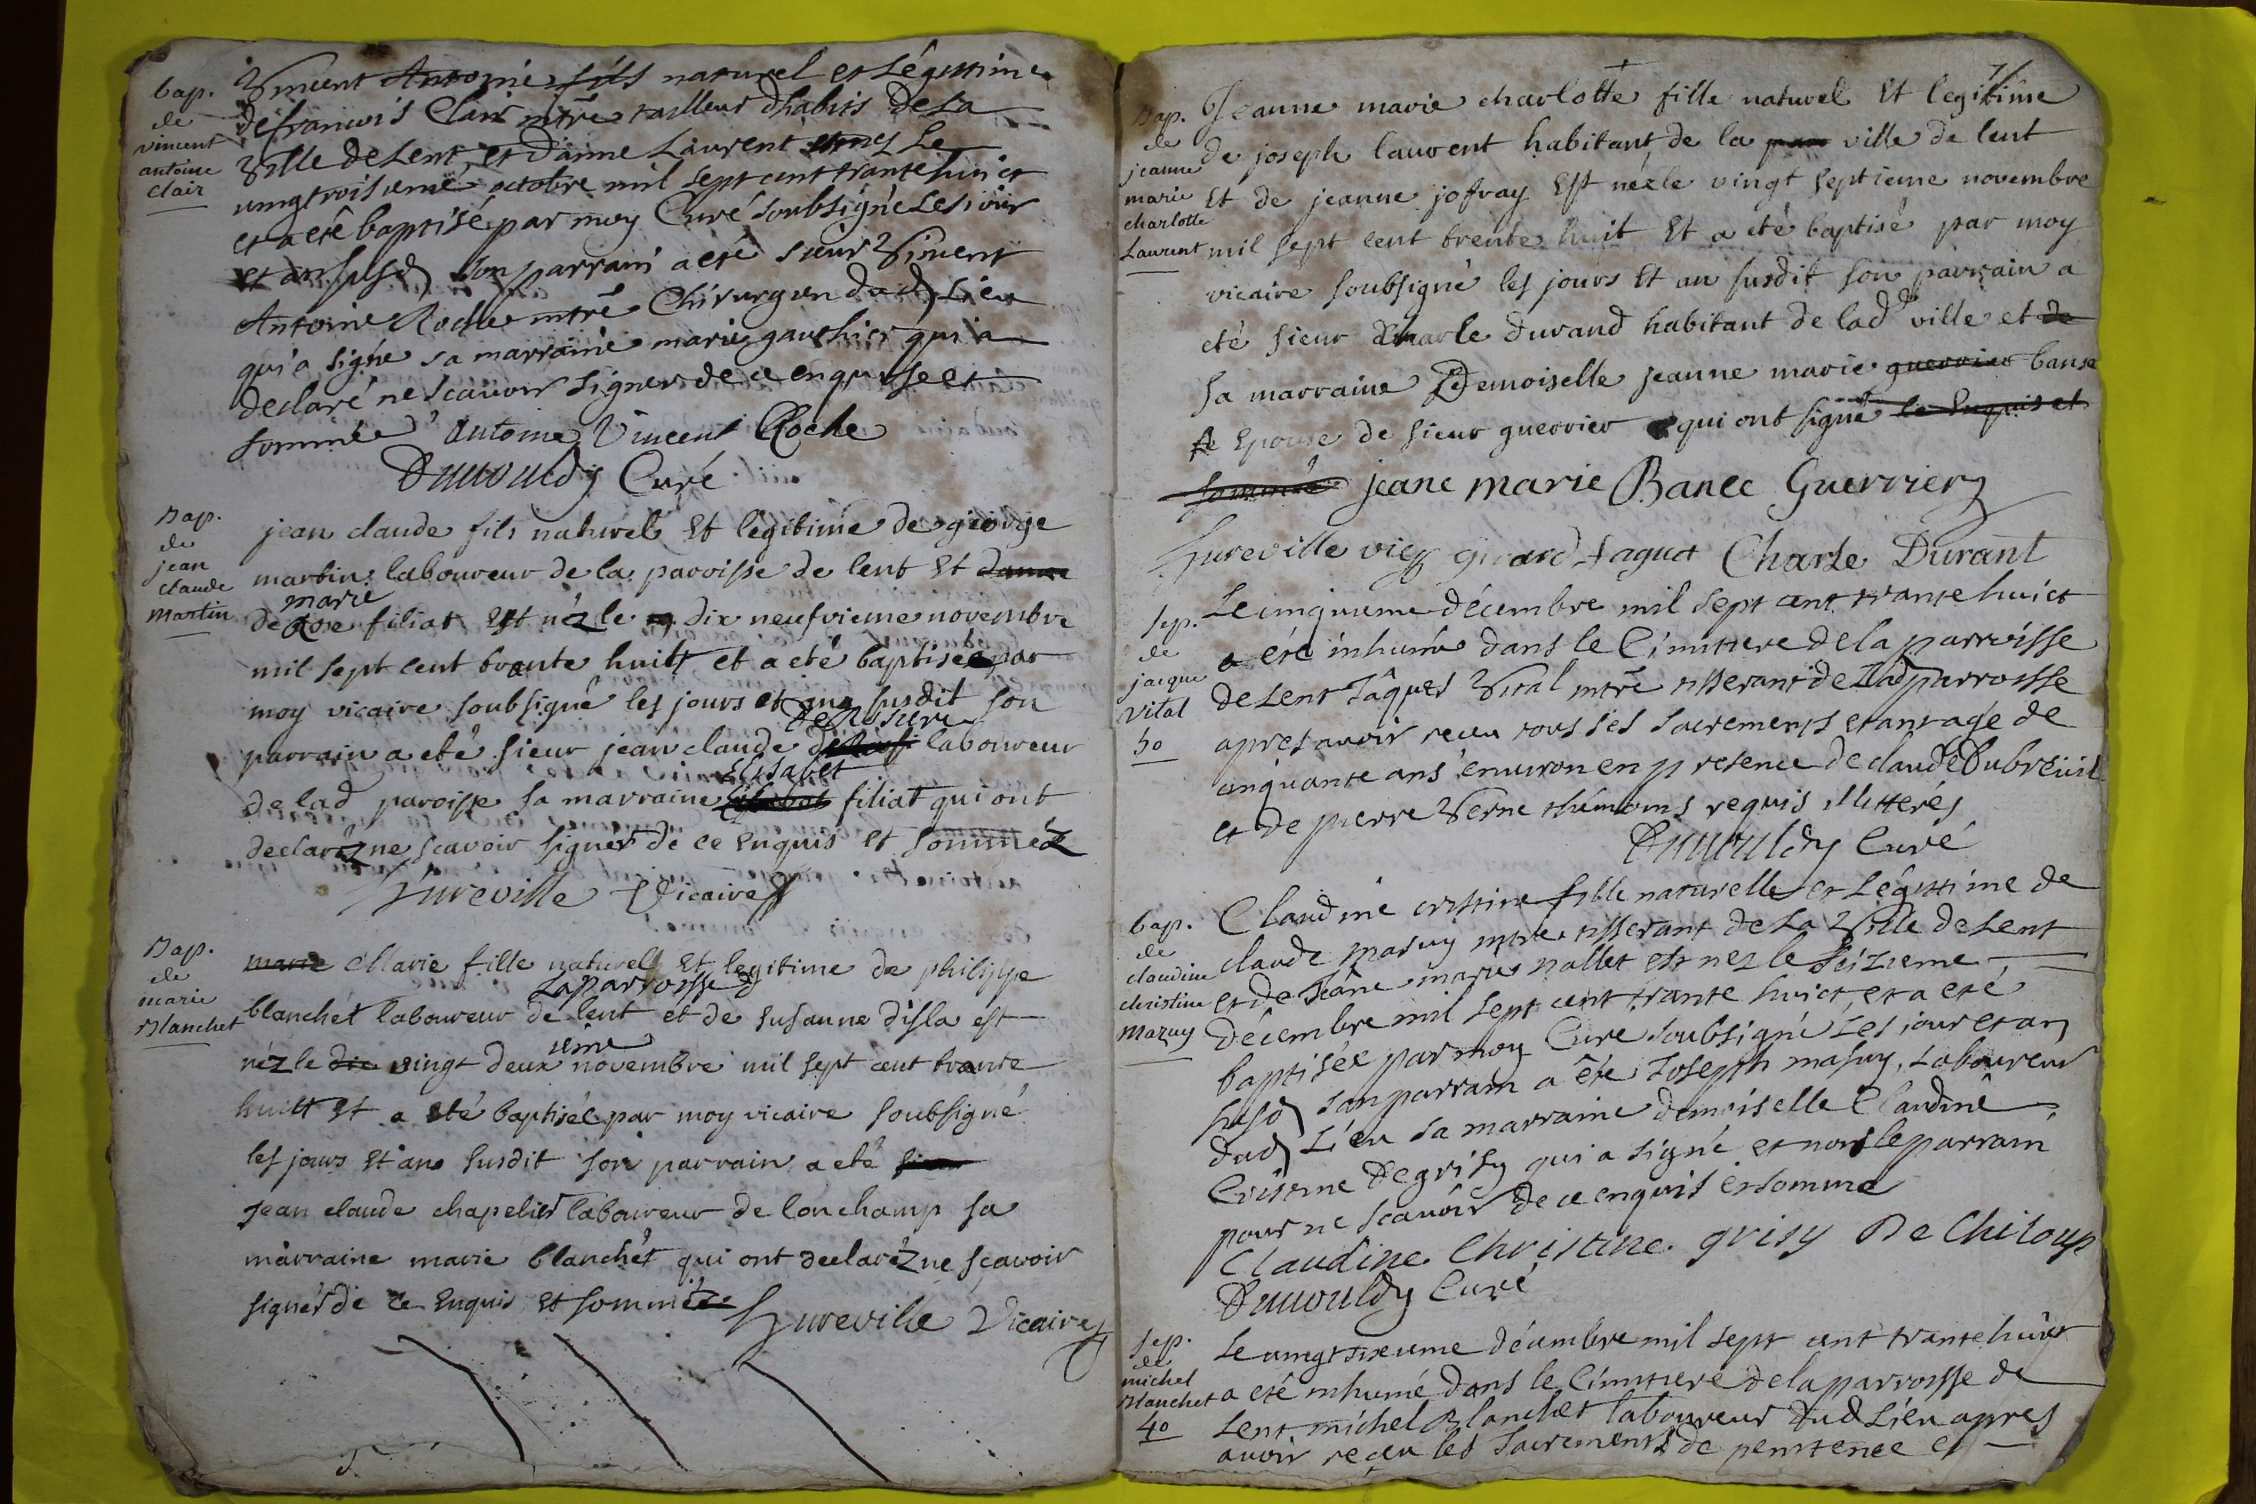 bap.
de
vincent
antoine
clair
Vincent Antoine fils naturel et Légittime
defrancois Clair mtre tailleur dhabits de La
Ville deLent et Danne Laurent Le
vingtroisieme octobre mil sept cent trante huict
et a eté baptisé par moy Curé soubsigné Les jour
et an susd son parrain a eté sieur Vincent
Antoine Roche mtre Chirurgien dud Lieu
qui a signé sa marraine marie gauthier qui a
declaré ne scavoir signer de ce enquise et
sommée Antoine Vincent Roche
Curé
Bap.
de
jean
claude
Martin
jean claude fils naturel Et legitime de george
martin laboureur de la paroisse de lent Et
marie
de filiat Est néz le dix neufvieme novembre
mil sept cent trante huitt et a eté baptisée par
moy vicaire soubsigné les jours et an susdit son
parrain a eté sieur jean claude laboureur
Elisabet
de lad paroisse sa marraine filiat qui ont
declaréz ne scavoir signer de ce Enquis et somméz
hureville Vicaire
Bap.
de
marie
Blanchet
marie Marie fille naturel Et legitime de philippe
Laparroisse
blanchet laboureur de lent et de susanne disla est
ieme
néz le vingt deux novembre mil sept cent trante
huitt Et a eté baptisée par moy vicaire soubsigné
les jours Et an susdit son parrain a eté
jean claude chapelier laboureur de lonchamp sa
marraine marie blanchet qui ont declaréz ne scavoir
signer de ce Enquis Et sommée hureville Vicaire
Bap.
de
jeanne
marie
charlotte
Laurent
Jeanne marie charlotte fille naturel Et legitime
de joseph laurent habitant de la ville de lent
Et de jeanne jofray Est néz le vingt septieme novembre
mil sept cent trente huit Et a eté baptisé par moy
vicaire soubsigné les jours Et an susdit son parrain a
eté sieur Charle durand habitant de lad ville et de
sa marraine Demoiselle jeanne marie guerrier banse
Epouse de sieur guerrier qui ont signé le Enquis et
sommée jeane marie Banec Guerrier
hureville vic girard faguet Charle Durant
sep.
de
jacque
Vital
50
Le cinquieme décembre mil sept cent trante huict
a eté inhumé dans le Cimittiere de la parroisse
de Lent Jâques Vital mtre tisserant de Lad parroisse
apres avoir receu tous ses sacrements etant agé de
cinquante ans environ en presence de claude Dubreuil
et de pierre Verne thémoins requis illitterés
Curé
bap.
de
claudine
christine
Mazuy
Claudine cristine fille naturelle et Légittime de
claude masuy mtre tisserant de La Ville de Lent
et de Jeane marie nallet est nez le Seizieme
décembre mil sept cent trante huict et a eté
baptisée par moy Curé soubsigné Les jour et an
susd son parrain a êté Joseph masuy Laboureur
dud Lieu sa marraine demoiselle Claudine
Cristine Degrisy qui a signé et non le parrain
pour ne scavoir de ce enquis et sommé
Claudine Christine grisy De Chiloup
Curé
sep.
de
michel
Blanchet
40
Le vingt sixieme décembre mil sept cent trante huict
a eté inhumé dans le Cimittiere de la parroisse de
Lent michel Blanchet laboureur dud Lieu apres
avoir receu les Sacrements de penitence et